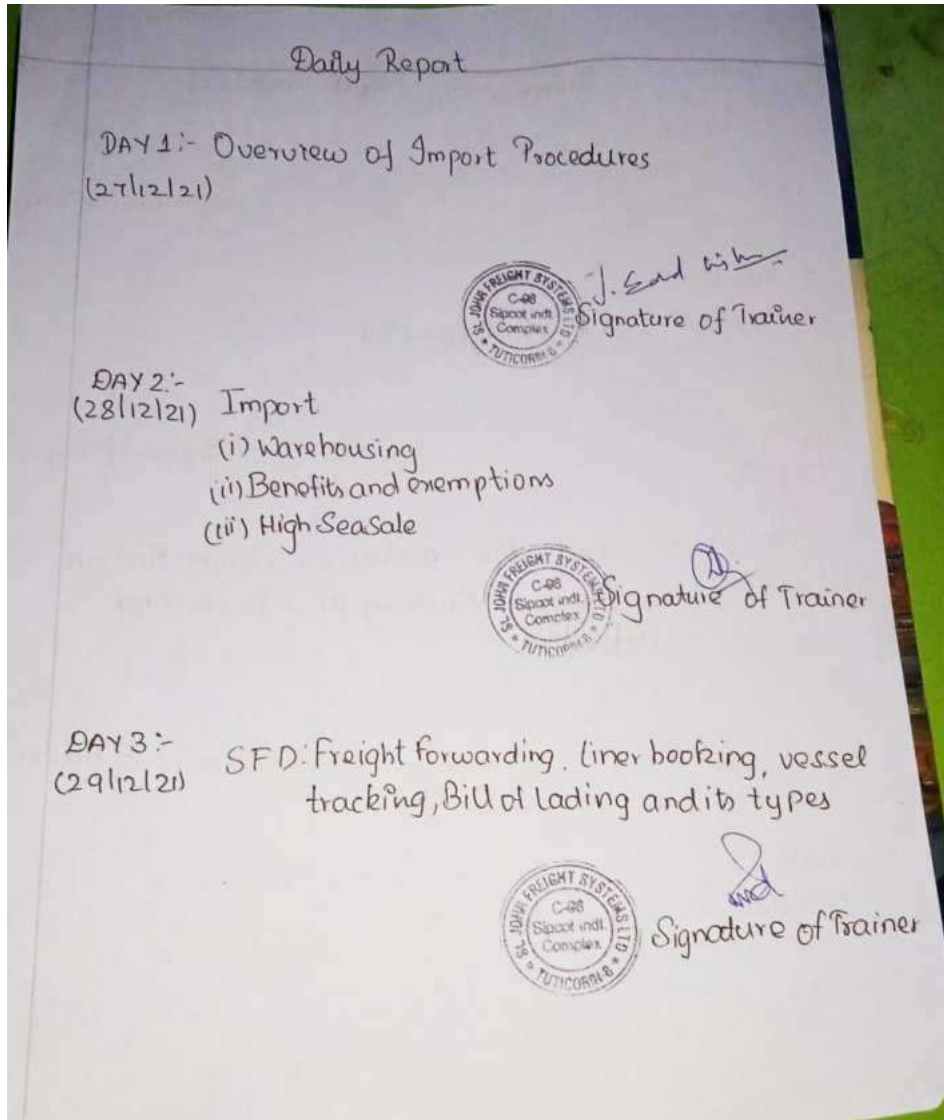 Daily Report
DAY 1:- Overview of Import Procedures
(27/12/21)
ST. JOHN FREIGHT SYSTEMS LTD
C-98
Sipcot indl.
Complex
* TUTICORIN-8 *
Signature of Trainer
DAY 2:-
(28/12/21) Import
(i) Warehousing
(ii) Benefits and exemptions
(iii) High Sea Sale
ST. JOHN FREIGHT SYSTEMS LTD
C-98
Sipcot indl.
Complex
* TUTICORIN-8 *
Signature of Trainer
DAY 3:-
(29/12/21) SFD: Freight forwarding, liner booking, vessel
tracking, Bill of lading and its types
ST. JOHN FREIGHT SYSTEMS LTD
C-98
Sipcot indl.
Complex
* TUTICORIN-8 *
Signature of Trainer